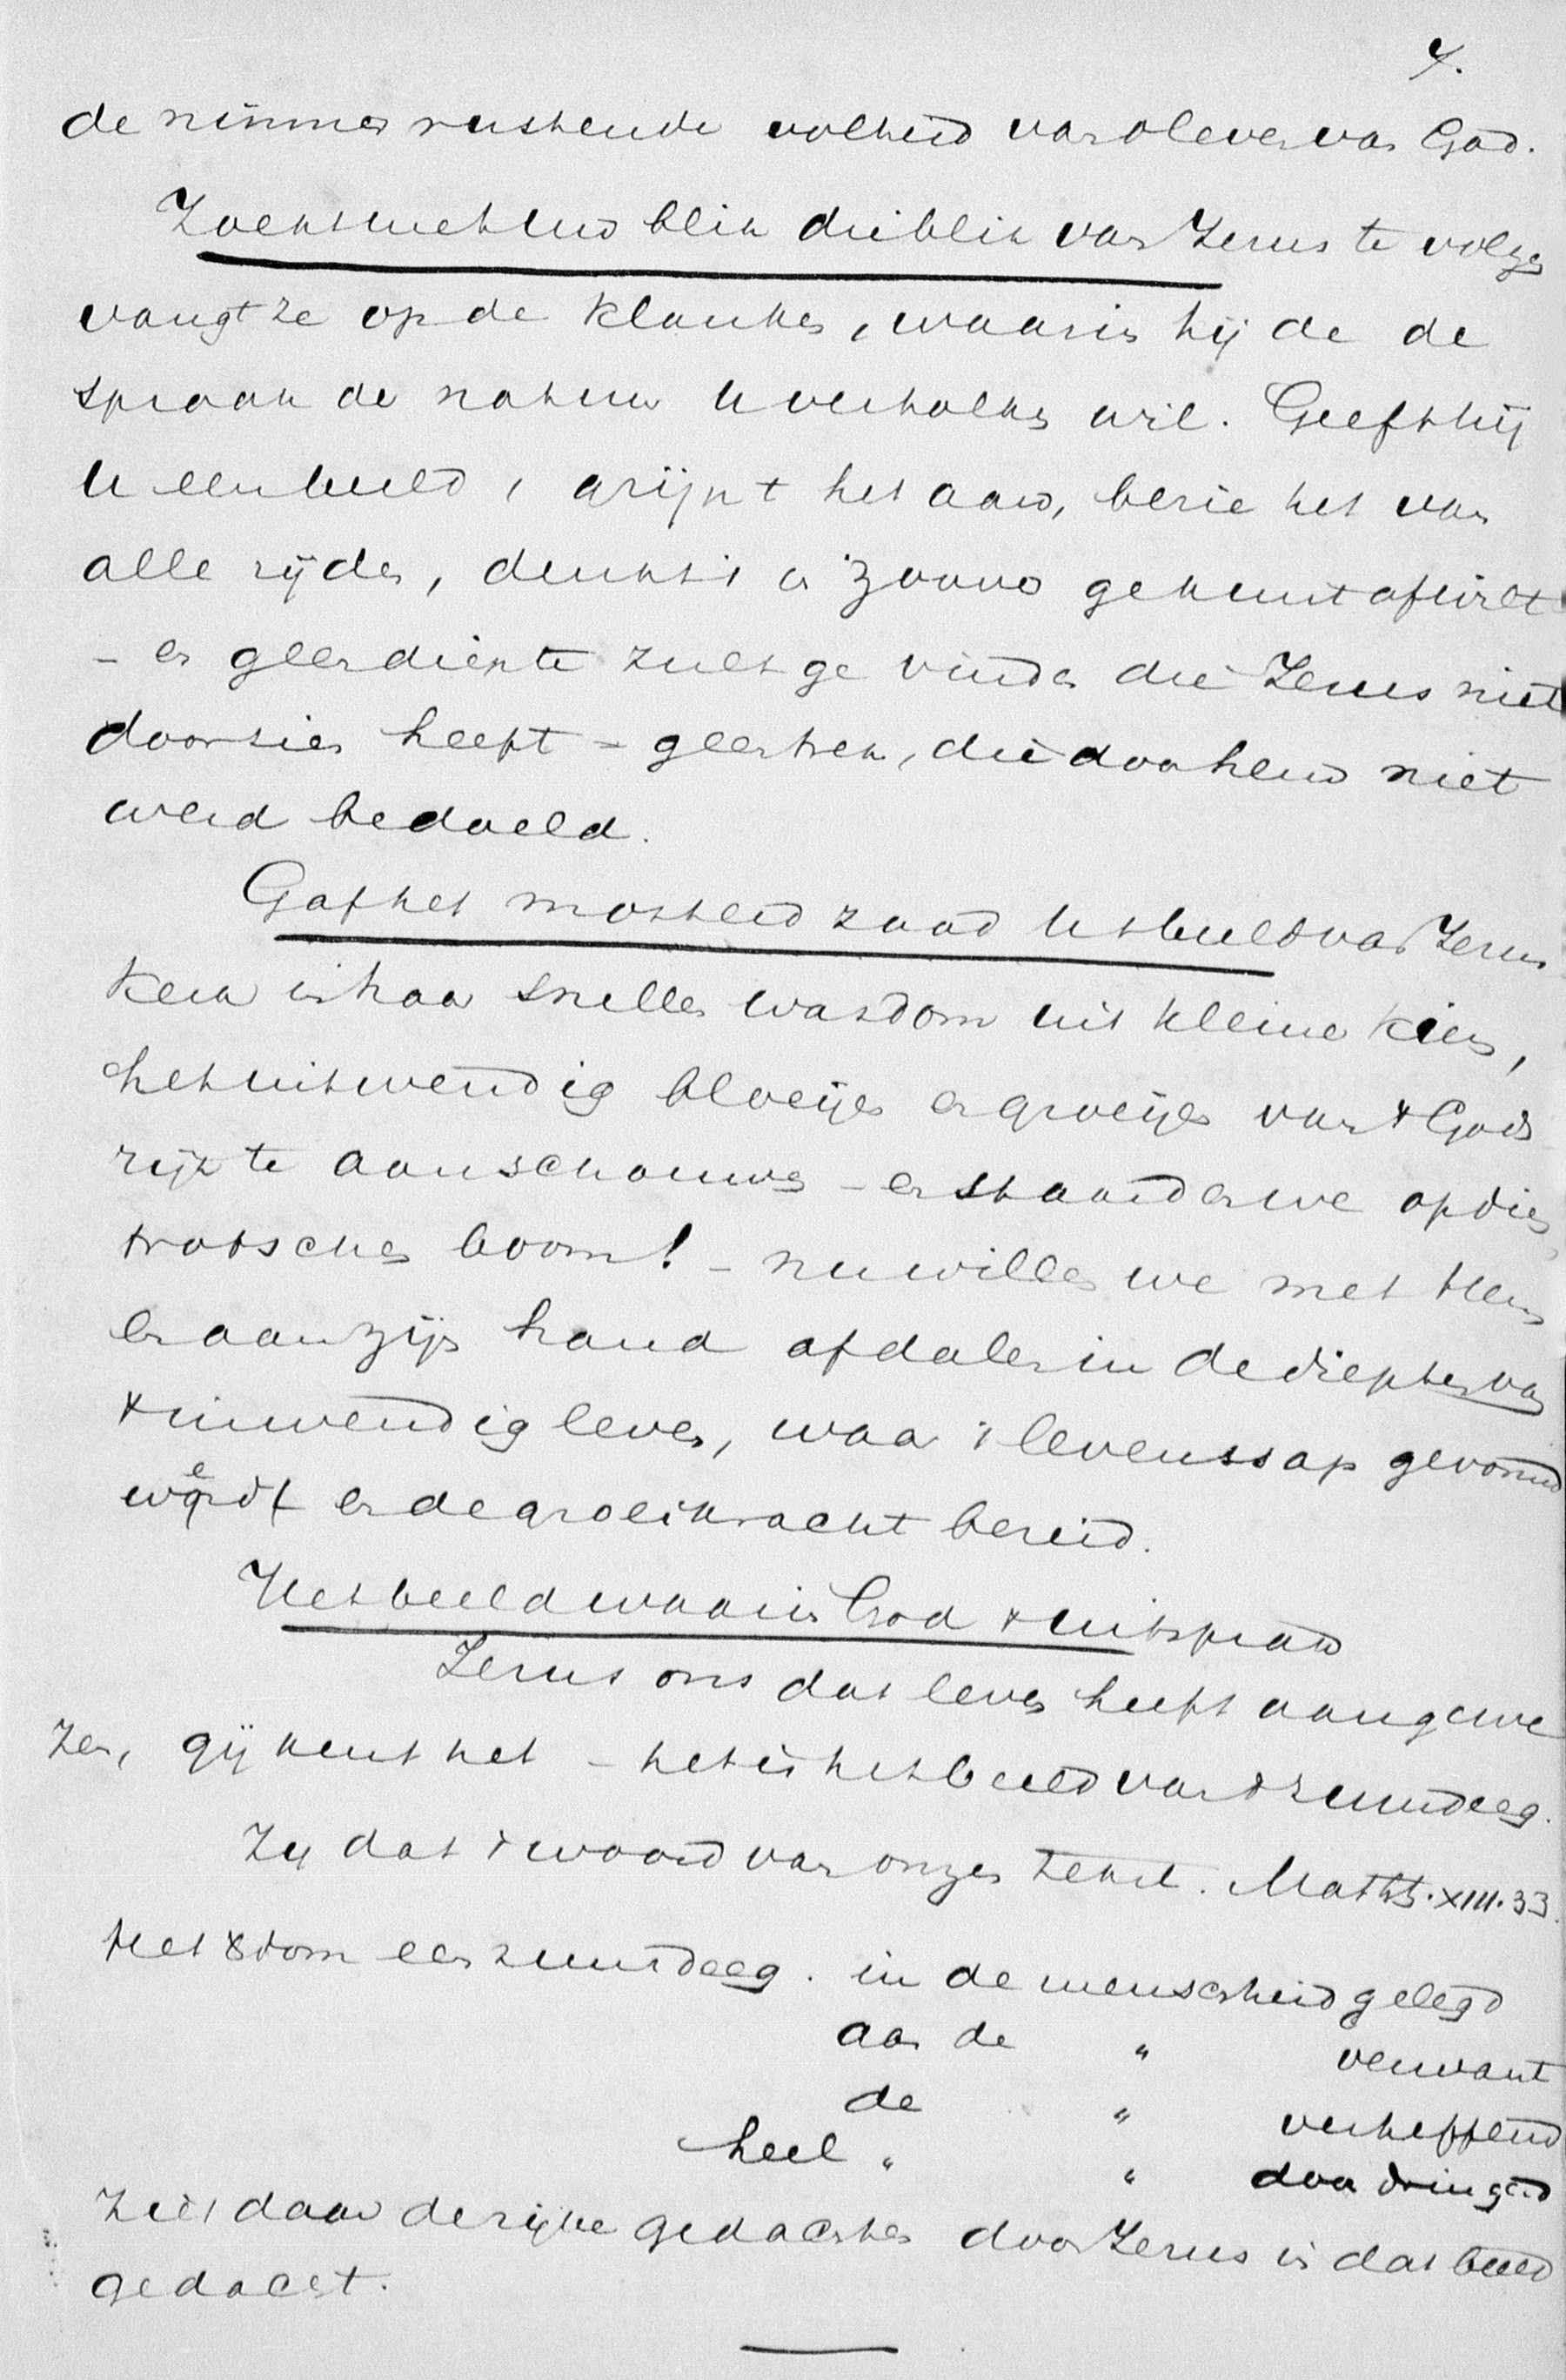 4.
de nimmer rustende volheid van 't leven van God.
Zoekt met uw blik die blik van Jezus te volgen
vangt ze op de klanken, waarin hij de de
spraak der natuur u vertolken wil. Geeft hij
u een beeld, grijpt het aan, bezie het van
alle zijden, denkt 't u zoover ge kunt
- en geen diepte zult ge vinden die Jezus niet
doorzien heeft - geen trek, die door hem niet
werd bedoeld.
Gaf het mosterdzaad ons 't beeld van Jezus
kerk in haar snellen wasdom uit kleine kiem,
het uitwendig bloeijen en groeijen van 't Gods
rijk te aanschouwen - en staarden we op dien
trotschen boom! - nu willen we met Hem
en aan zijn hand afdalen in de diepten van
't inwendig leven, waar 't levenssap gevormd
werdt en de groeikracht bereid.
Het beeld waarin God 't uitsprak
Jezus ons dat leven heeft aangewe
zen, gij kent het - het is het beeld van 't zuurdeeg.
Zij dat 't woord van onzen tekst. Matth. XIII. 33.
Het xdom een zuurdeeg. in de menscheid gelegd
aan de " verwant
de " verheffend
heel " " doordringend
Ziet daar de rijke gedachten door Jezus in dat beeld
gedacht.